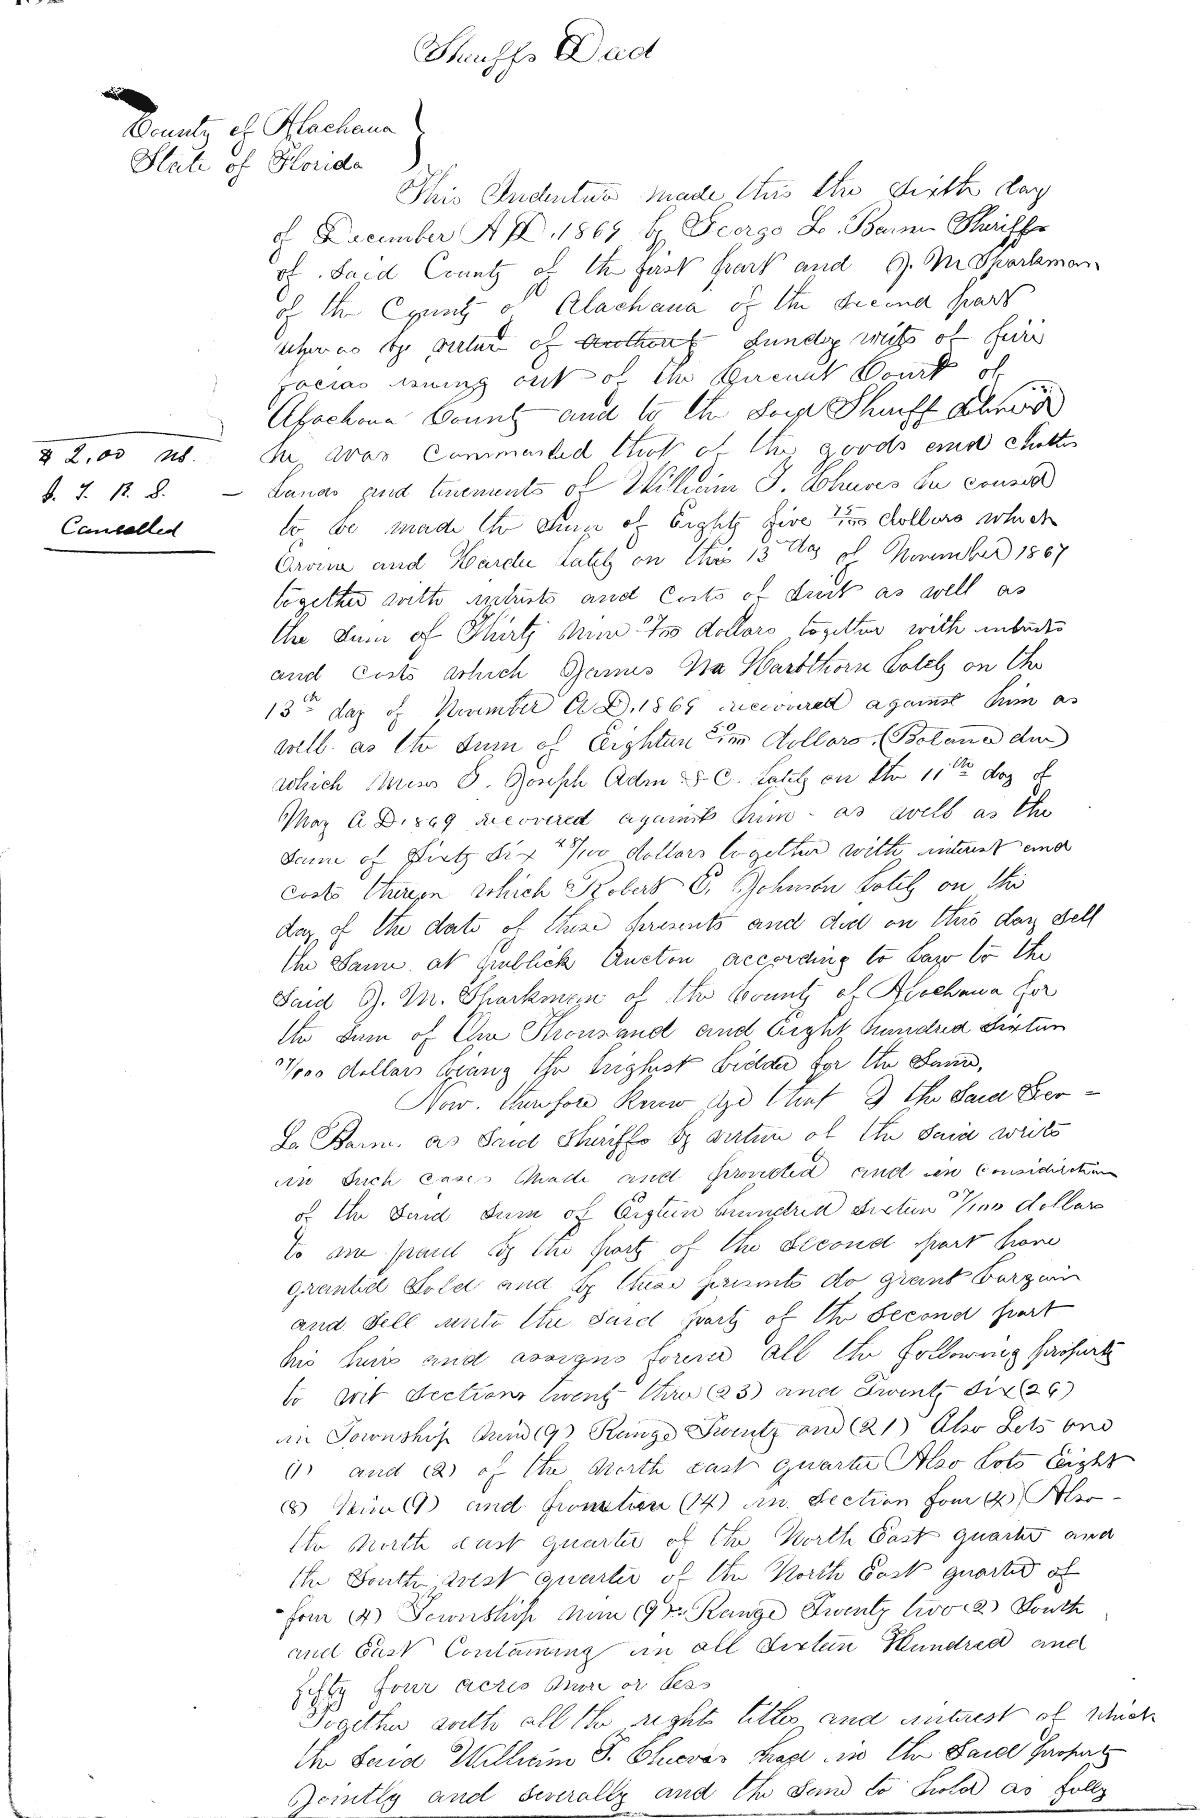 Sheriffs Deed
County of Alachua }
State of Florida
This Indenture made this the Sixth day
of December A.D. 1869 by George L. Barnes Sheriffs
of Said County of the first part and J. M Sparkman
of the County of Alachua of the second part
wheras by virtue of Sundry writs of fieri
facias issuing out of the Circuit Court of
Alachua County and to the Said Sheriff
he was Commanded that of the goods and chattles
$ 2.00 us.
Lands and tenements of William F. Cheeves he caused
J. T. R. S. —
to be made the Sum of Eighty five 75/100 dollars which
Cancelled
Ervine and Hardee Lately on this 13th day of November 1867
together with intrists and Costs of Suit as well as
the Sum of Thirty Nine /100 dollars together with intrists
and costs which James Harthorn Lately on the
13th day of November A.D. 1869 recovered against him as
well as the Sum of Eighteen 50/100 dollars (Balance due)
which Moses S. Joseph Adm &C. Lately on the 11th day of
May A D. 1869 recovered against him as well as the
Same of Sixty Six 48/100 dollars together with interest and
costs thereon which Robert C. Johnson Lately on the
day of the date of these presents and did on this day Sell
the Same at publick Auction according to Law to the
Said J. M. Sparkman of the County of Alachua for
the Sum of One Thousand and Eight hundred Sixteen
/100 dollars being the highest bidder for the Same.
Now. therefore Know ye that I the Said Geo =
L. Barnes as Said Sheriffs by virtue of the Said writs
in Such cases Made and provided and in Consideration
of the Said Sum of Eigteen hundred Sixteen /100 dollars
to me paid by the party of the second part have
granted Sold and by these presents do grant bargain
and Sell unto the Said party of the Second part
his heirs and assigns forever all the following property
to wit Sections twenty three (23) and Twenty Six (26)
in Township Nine (9) Range Twenty one (21) Also Lots one
(1) and (2) of the North east quarter Also Lots Eight
(8) Nine (9) and (14) in Section four (4) Also -
the North east quarter of the North East quarter and
the South west quarter of the North East quarter of
four (4) Township Nine (9) Range Twenty two (2) South
and East Containing in all Sixteen Hundred and
fifty four acres More or Less
Together with all the rights titles and interest of which
the Said William F. Cheeves had in the Said property
Jointly and Severally and the Same to hold as fully